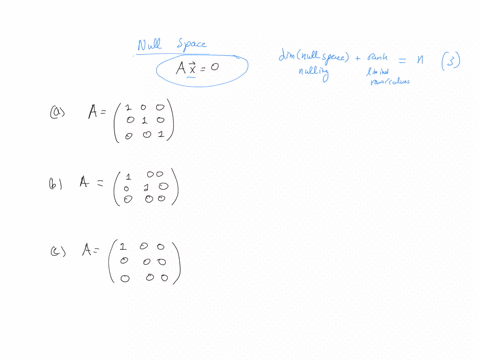 Null Space
A x⃗ = 0
dim(null space) + rank = n (3)
nullity
(a) A = (1 0 0
0 1 0
0 0 1)
b) A = (1 0 0
0 1 0
0 0 0)
(c) A = (1 0 0
0 0 0
0 0 0)